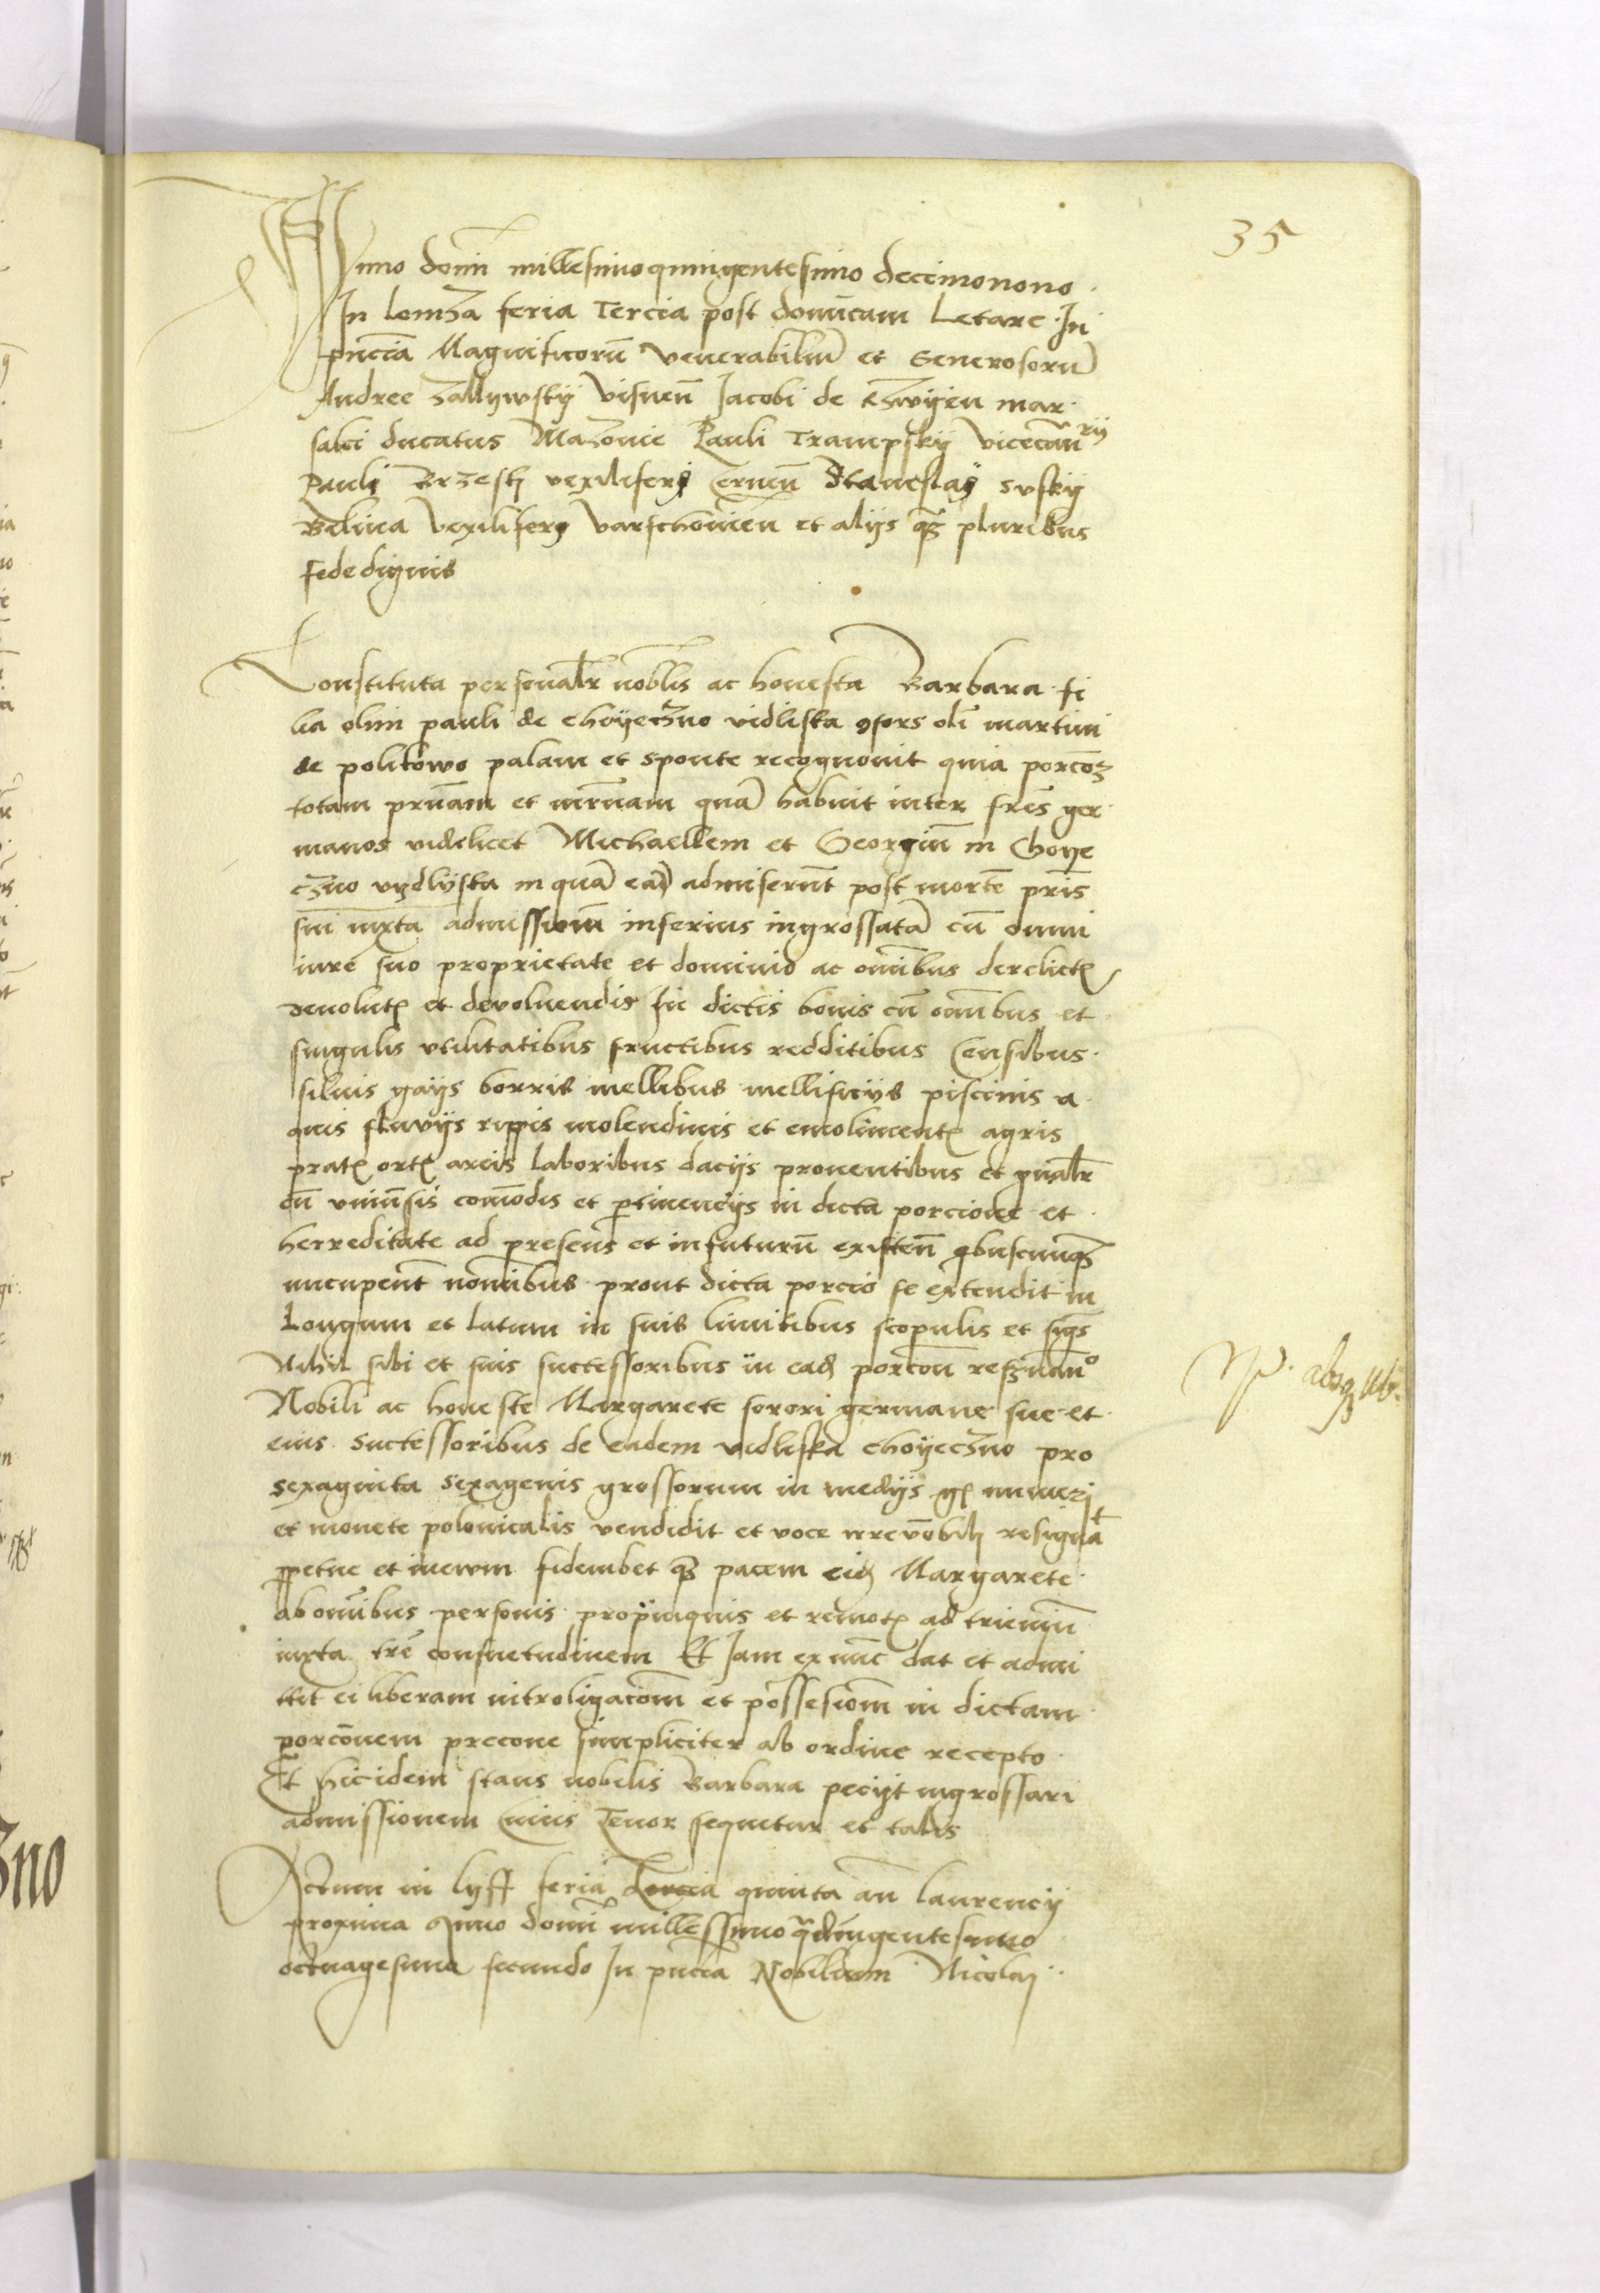 35
Anno domi millesimo quingentesimo decimonono
In lomza feria Tercia post domicam Letare In
pncia Magnificoru venerabiliu et Generosoru
Andree zallywsky visnen Jacobi de mar
salci ducatus Mazouie Pauli Trampsky vicecan rij
Pauli Brzesky vexiliferi Cernen Stanislaj Susky
Belina vexiliferj varschouien et alijs qz pluribus
fededignis
Constituta personalr noblis ac honesta Barbara fi
lia olim pauli de choyeczno vidliska 9sors oli martini
de politowo palam et sponte recognouit quia porcoz
totam prnam et mrnam qua habuit inter fres ger
manos videlicet Michaellem et Georgiu in Choye
czno vydlyska in qua ea admiserut post morte pris
sui iuxta admissiom inferius ingrossata cu omni
iure suo proprietate et dominio ac omibus derelictis
deuolutis et deuoluendis In dictis bonis cu omibus et
singulis vtilitatibus fructibus redditibus Censibus
siluis gays borris mellibus mellificijs piscinis a
quis fluvijs rippis molendinis et emolimentis agris
pratis ortis areis laboribus dacijs prouentibus et gnalr
cu vniuesis comodis et ptinencijs in dicta porcione et
herreditate ad presens et in futuru existen qbuscunqz
nucupent nomibus prout dicta porcio se extendit in
Longum et latum in suis limitibus scopulis et sigs
Nihil sibi et suis successoribus in eadz porcon reszuan°
Nobili ac honeste Margarete sorori germane sue et
eius successoribus de eadem vidliska choyeczno pro
sexaginta sexagenis grossorum in medijs gs numeri
et monete polonicalis vendidit et voce irreuobili resignat
ppetue et inewm fideiubet qz pacem eidz Margarete
ab omibus personis propinquis et remotis ad trieniu
iuxta tre consuetudinem Et Jam ex nuc dat et admi
ttit ei liberam intrologacom et possesiom in dictam
porconem precone simpliciter ab ordine recepto
Et hic idem stans nobilis Barbara pecijt ingrossari
admissionem Cuius Tenor sequitur et talis
Actum in lyff feria Tercia quinta an laurencij
proxima Anno domi millessimo qdringentesimo
octuagesimo secundo In pncia Nobilium Nicolaj